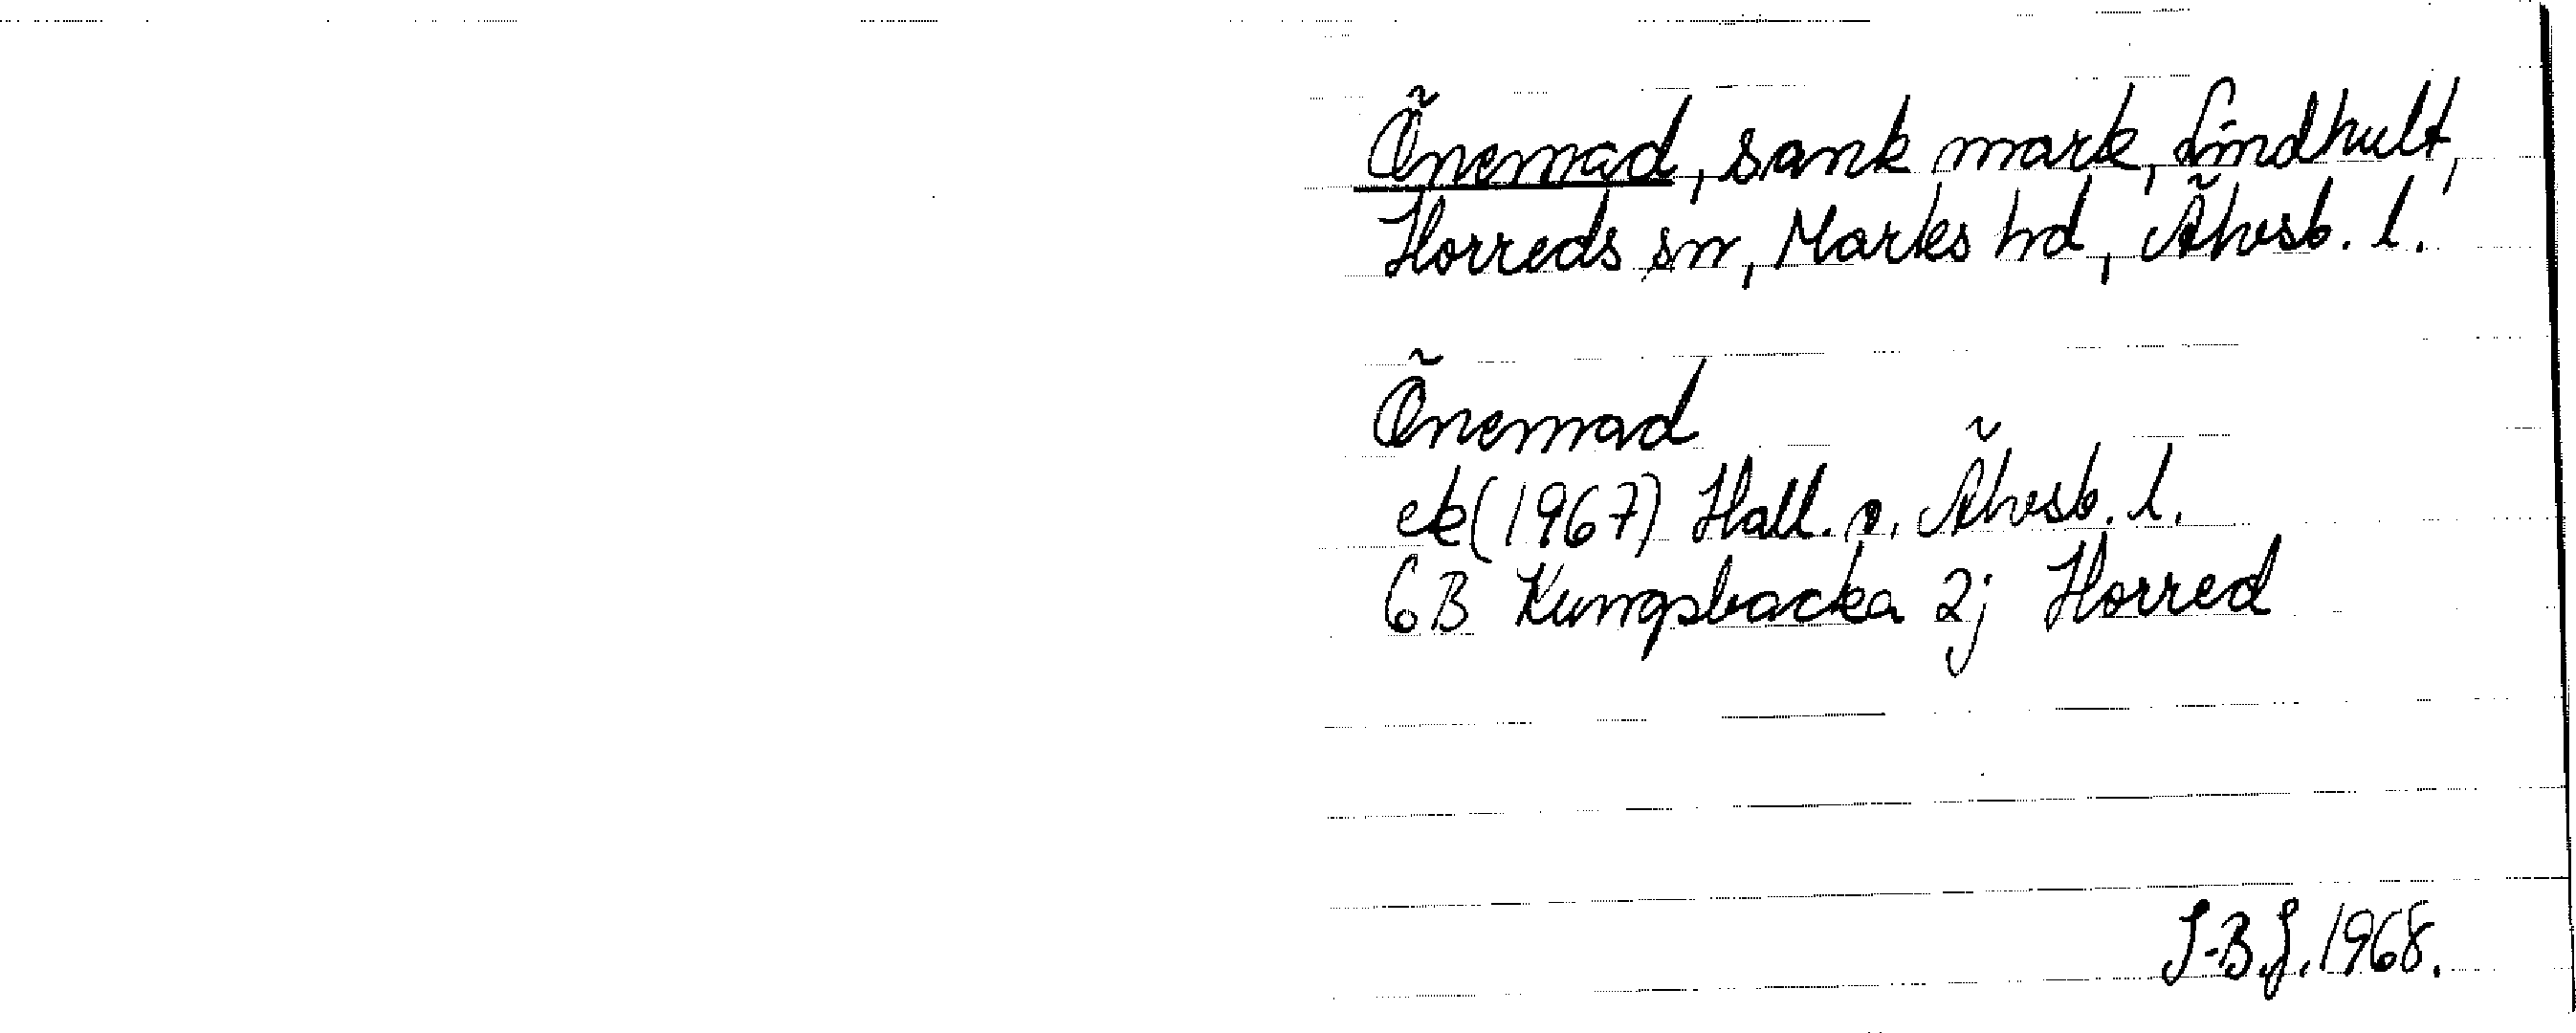 Önemad, sank mark, Lindhult,
Horreds sn, Marks hd, Älvsb. l.
Önemad
ek (1967) Hall. o. Älvsb. l.
6B Kungsbacka 2j Horred
I-B.J. 1968.